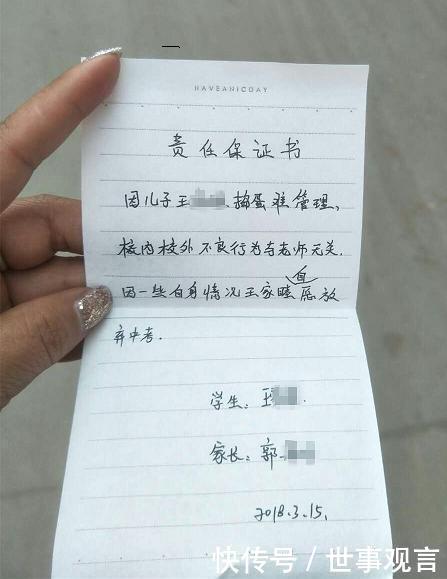 HAVEANICDAY
责任保证书
因儿子王 捣蛋难管理、
校内校外不良行为与老师无关.
因一些自身情况王家睦自愿放
弃中考.
学生：王
家长：郭
2018.3.15.
快传号 / 世事观言